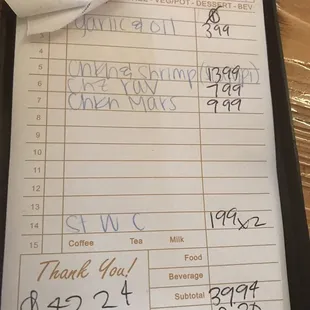 VEG/POT - DESSERT - BEV.
garlic & oil 399
4
5 Chkn & Shrimp 1399
6 Chz rav 799
7 Chkn Mars 999
8
9
10
11
12
13
14 St W C 199 x2
15
Coffee Tea Milk
Thank You! Food
Beverage
$42.24 Subtotal 3994